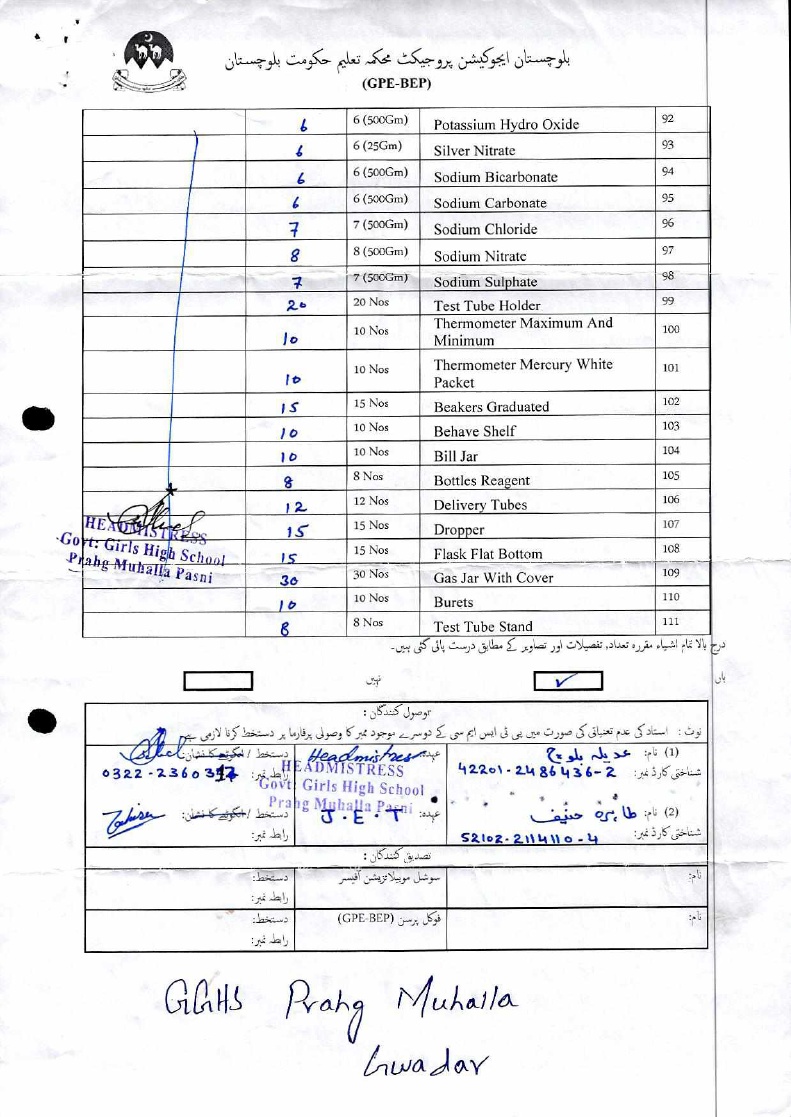 بلوچستان ایجوکیشن پروجیکٹ محکمہ تعلیم حکومت بلوچستان
(GPE-BEP)
6 6 (500Gm) Potassium Hydro Oxide 92
6 6 (25Gm) Silver Nitrate 93
6 6 (500Gm) Sodium Bicarbonate 94
6 6 (500Gm) Sodium Carbonate 95
7 7 (500Gm) Sodium Chloride 96
8 8 (500Gm) Sodium Nitrate 97
7 7 (500Gm) Sodium Sulphate 98
20 20 Nos Test Tube Holder 99
10 10 Nos Thermometer Maximum And Minimum 100
10 10 Nos Thermometer Mercury White Packet 101
15 15 Nos Beakers Graduated 102
10 10 Nos Behave Shelf 103
10 10 Nos Bill Jar 104
8 8 Nos Bottles Reagent 105
12 12 Nos Delivery Tubes 106
15 15 Nos Dropper 107
15 15 Nos Flask Flat Bottom 108
30 30 Nos Gas Jar With Cover 109
10 10 Nos Burets 110
8 8 Nos Test Tube Stand 111
HEADMISTRESS
Govt: Girls High School
Prahg Muhalla Pasni
درج بالا تمام اشیاء مقررہ تعداد, تفصیلات اور تصاویر کے مطابق درست پائی گئی ہیں۔
ہاں ✓ نہیں
وصول کنندگان :
نوٹ : استاد کی عدم تعیناتی کی صورت میں پی ٹی ایس ایم سی کے دوسرے موجود ممبر کا وصولی پرفارما پر دستخط کرنا لازمی ہے
(1) نام: عدیلہ بلوچ عہدہ: Headmistress دستخط / انگوٹھے کا نشان:
شناختی کارڈ نمبر: 42201-2486436-2 رابطہ نمبر:
HEADMISTRESS
Govt: Girls High School
Prahg Muhalla Pasni
(2) نام: طاہرہ حنیف عہدہ: J.E.T دستخط / انگوٹھے کا نشان:
شناختی کارڈ نمبر: 52102-2114110-4 رابطہ نمبر:
تصدیق کنندگان :
نام: سوشل موبیلائزیشن آفیسر دستخط:
رابطہ نمبر:
نام: فوکل پرسن (GPE-BEP) دستخط:
رابطہ نمبر:
GGHS Prahg Muhalla
Gwadar